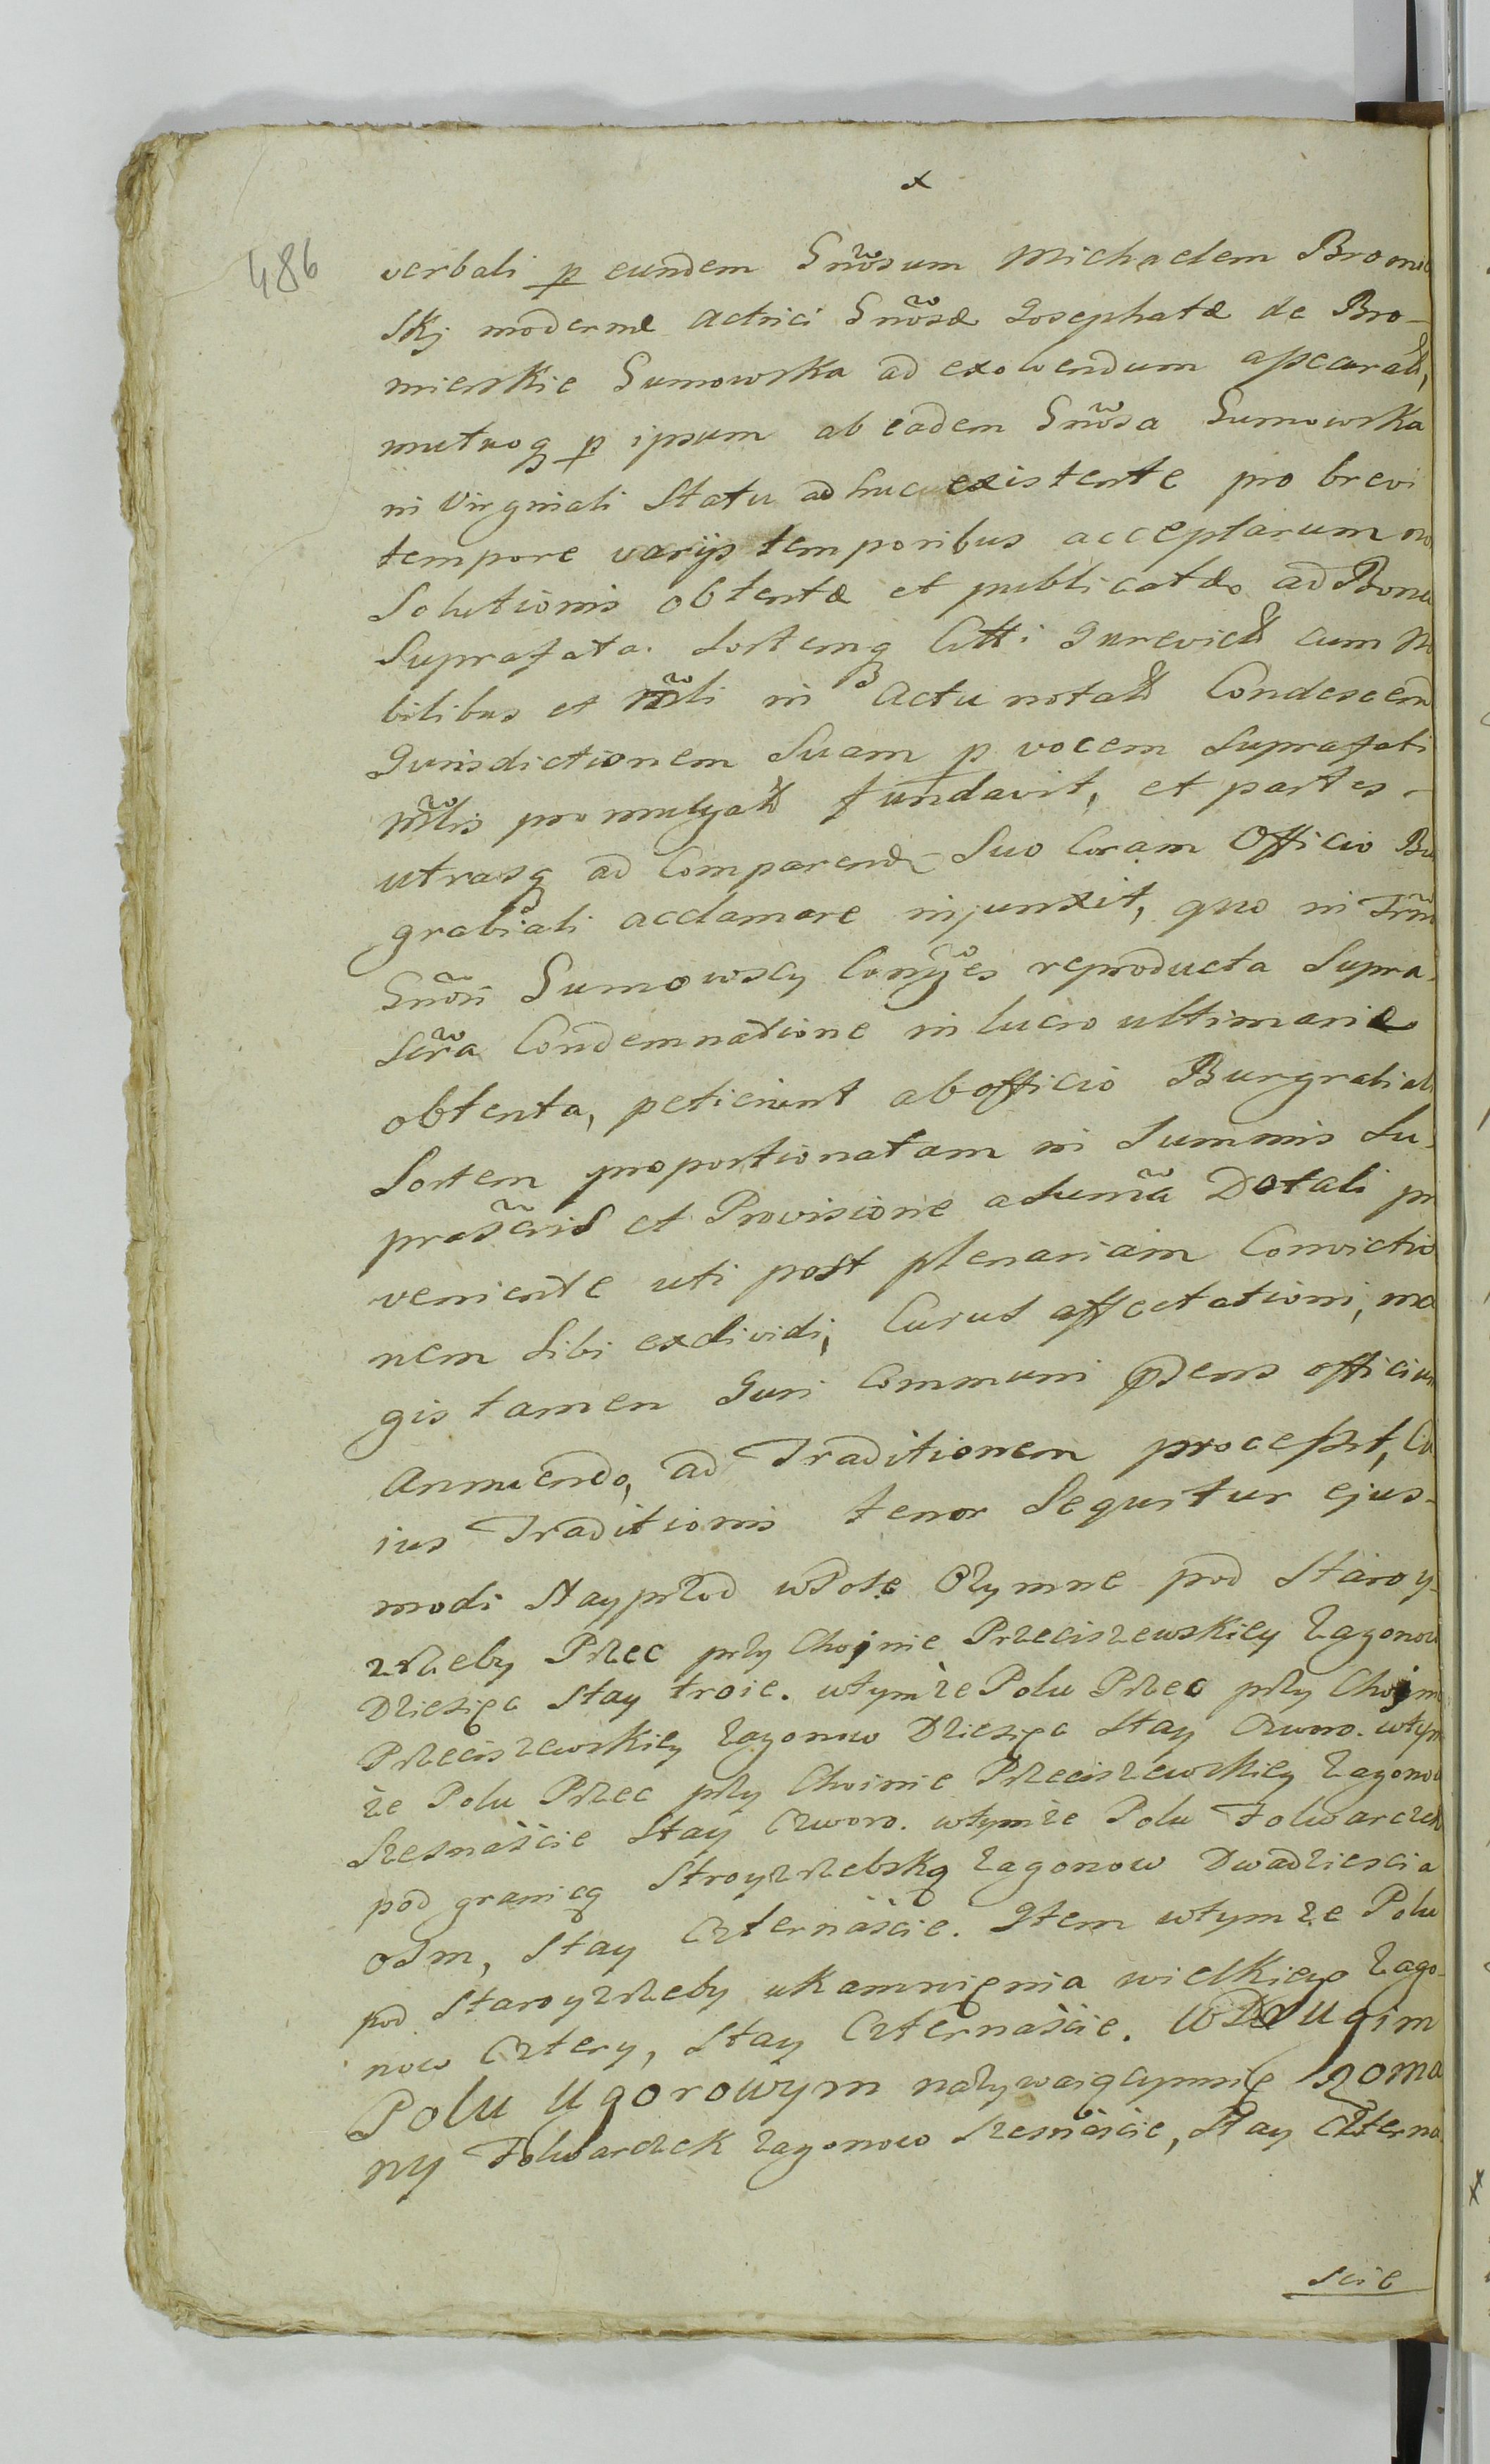 x
486
verbali p eundem Gnõsum Michaelem Bromie
skj modernæ Actrici Gnõsæ Josephatæ de Bro-
mierskie Sumowska ad exolvendum assecurat,
mutuoq p ipsum ab eadem Gnõsa Sumowska
in Virginali Statu adhuc existente pro brevi
tempore varijs temporibus acceptarum no
Solutionis obtentæ et publicatæ ad Bona
Suprafata. Sortemq Citti Jurevictt cum No
bilibus et Mrli in Actu notatt Condescend
Jurisdictionem Suam p vocem Suprafati
Mrlis promulgatt fundavit, et partes
utrasq ad Comparend Suo Coram Officio Bur
grabiali acclamare injunxit, quo in Trmo
Gnõsi Sumowscy Conjges reproducta Supra
Scra Condemnatione in lucro ultimarie
obtenta, petierunt ab officio Burgrabiali
Sortem proportionatam in Summis Su-
prascris et Provisione a Sumã Dotali pro
veniente uti post plenariam Convictio
nem Sibi exdividi, Cujus affectationi, ma
gis tamen Juri Communi pdens officium
Annuendo, ad Traditionem processit, Cu
ius Traditionis tenor Sequitur ejus-
modi Nayprzod w Pole Ozymne pod Staroy-
zrzeby Przec przy Chojnie Przeciszewskiey Zagonow
Dziesięc Stay troie. wtymże Polu Przec przy Chojnie
Przeciszewskiey Zagonow Dziesięc Stay Czworo. wtym
że Polu Przec przy Choinie Przeciszewskiey Zagonow
Szesnaście Stay Czworo. wtymże Polu Folwarczek
pod granicą Stroyzrzebską Zagonow Dwadziescia
osm, Stay Czternaście. Item wtymże Polu
pod Staroyzrzeby u Kamnięnia wielkiego Zago-
now Cztery, Stay Czternaście. W Drugim
Polu Ugorowym nazywaiącym się Roma
ny Folwarczek Zagonow Szesnaście, Stay Czterna
scie